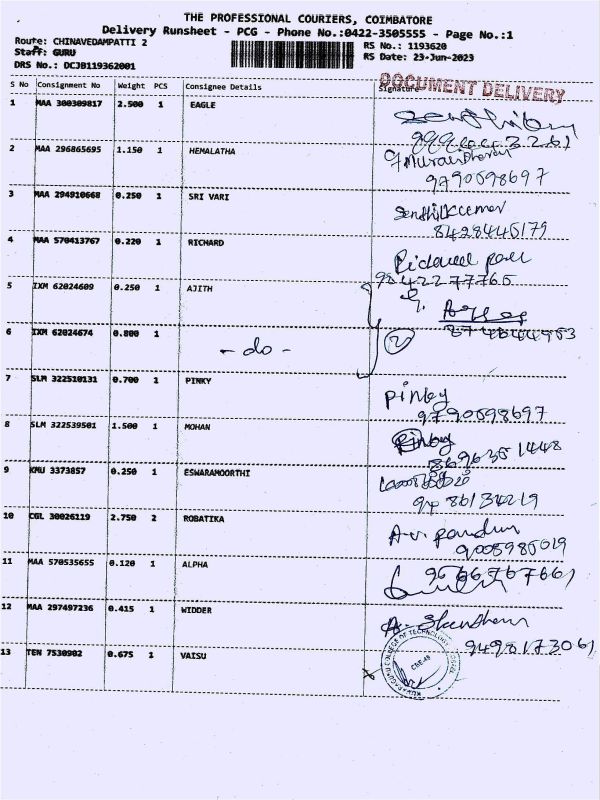 THE PROFESSIONAL COURIERS, COIMBATORE
Delivery Runsheet - PCG - Phone No.:0422-3505555 - Page No.:1
Route: CHINAVEDAMPATTI 2
RS No.: 1193620
Staff: GURU
RS Date: 23-Jun-2023
DRS No.: DCJB119362001
DOCUMENT DELIVERY
S No Consignment No Weight PCS Consignee Details Signature
1 MAA 300309817 2.500 1 EAGLE
2 MAA 296865695 1.150 1 HEMALATHA
9790598697
3 MAA 294910668 0.250 1 SRI VARI Senthilkumar
8428445179
4 MAA 570413767 0.220 1 RICHARD
9842277765
5 IXM 62024609 0.250 1 AJITH
8748844953
6 IXM 62024674 0.800 1 - do - 2
7 SLM 322510131 0.700 1 PINKY Pinky
9790598697
8 SLM 322539501 1.500 1 MOHAN Pinky
9 KMU 3373857 0.250 1 ESWARAMOORTHI
10 CGL 30026119 2.750 2 ROBATIKA
9005985019
11 MAA 570535655 0.120 1 ALPHA
12 MAA 297497236 0.415 1 WIDDER
9498173061
13 TEN 7530902 0.675 1 VAISU
COLLEGE OF TECHNOLOGY